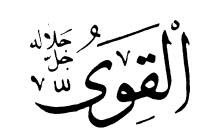 الْقَوِىُّ جل جلاله